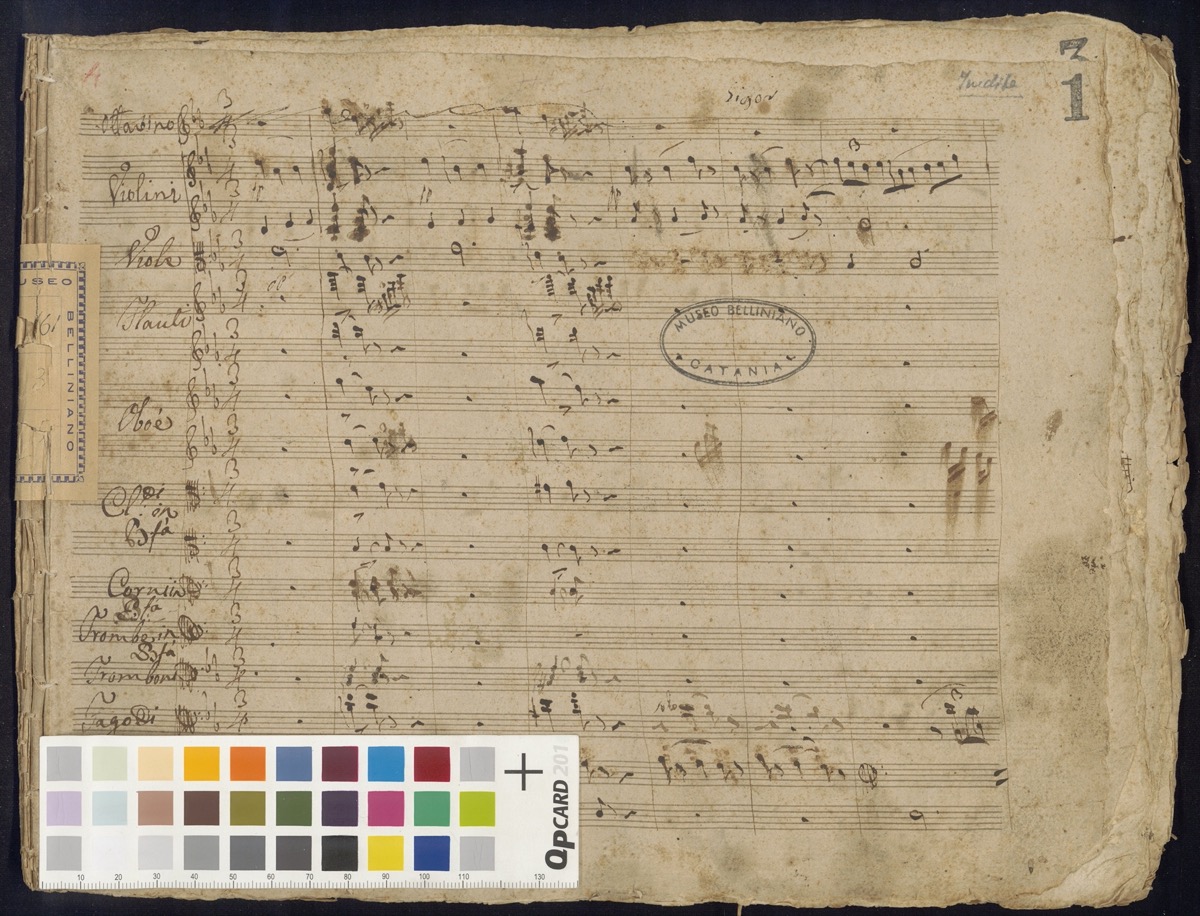 3
1
Inedita
Ottavino
Violini
Viole
Flauti
Oboè
Cl.
in
Bfa
Corni in
Bfa
Trombe in
Bfa
Tromboni
Fagotti
solo
MUSEO BELLINIANO
CATANIA
MUSEO
BELLINIANO
QPCARD 201
10 20 30 40 50 60 70 80 90 100 110 130